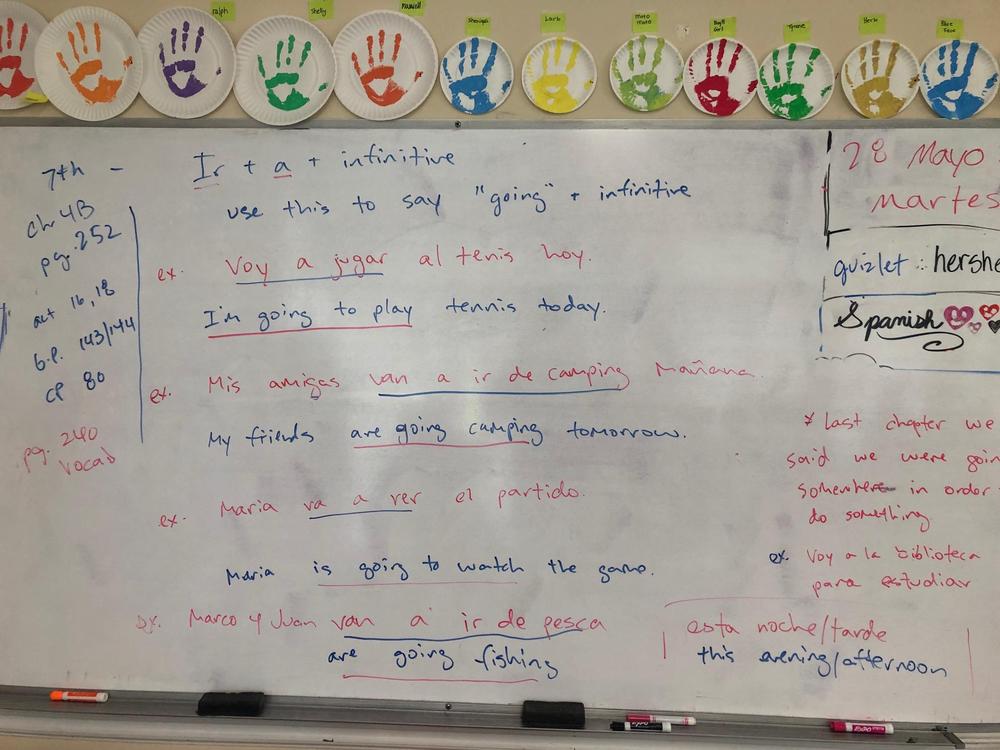 ralph
Shelly
Maxwell
Shaniqua
Larb
moto moto
Bagll Girl
Tyrone
Herb
7th -
chr 4B
pg. 252
act 16, 18
g.p. 143/144
cp 80
pg. 240
vocab
Ir + a + infinitive
use this to say "going" + infinitive
ex. Voy a jugar al tenis hoy.
I'm going to play tennis today.
ex. Mis amigas van a ir de camping Mañana.
My friends are going camping tomorrow.
ex. Maria va a ver el partido.
Maria is going to watch the game.
ex. Marco y Juan van a ir de pesca
are going fishing
28 Mayo
martes
quizlet : hershe
Spanish
* Last chapter we
said we were goin
somewhere in order
do something
ex. Voy a la biblioteca
para estudiar
esta noche/tarde
this evening/afternoon